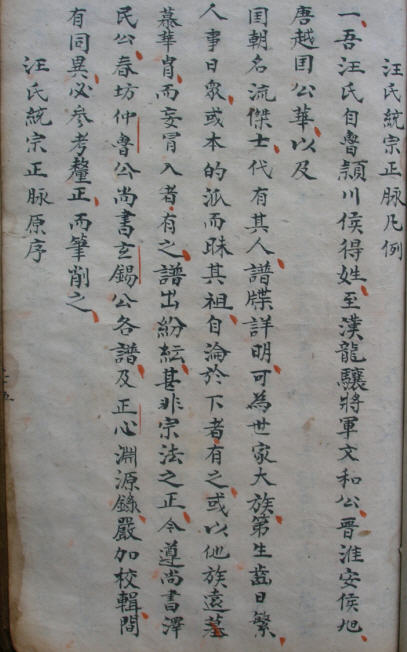 汪氏統宗正脉凡例
一吾汪氏自魯潁川侯得姓至漢龍驤將軍文和公晉淮安侯旭
唐越囯公華以及
囯朝名流傑士代有其人譜牒詳明可為世家大族第生齒日繁
人事日衆或本的派而昧其祖自淪於下者有之或以他族遠墓
慕華肖而妄冐入者有之譜出紛紜甚非宗法之正今遵尚書澤
民公春坊仲魯公尚書玄錫公各譜及正心淵源錄嚴加校輯間
有同異必參考釐正而筆削之
汪氏統宗正脉原序